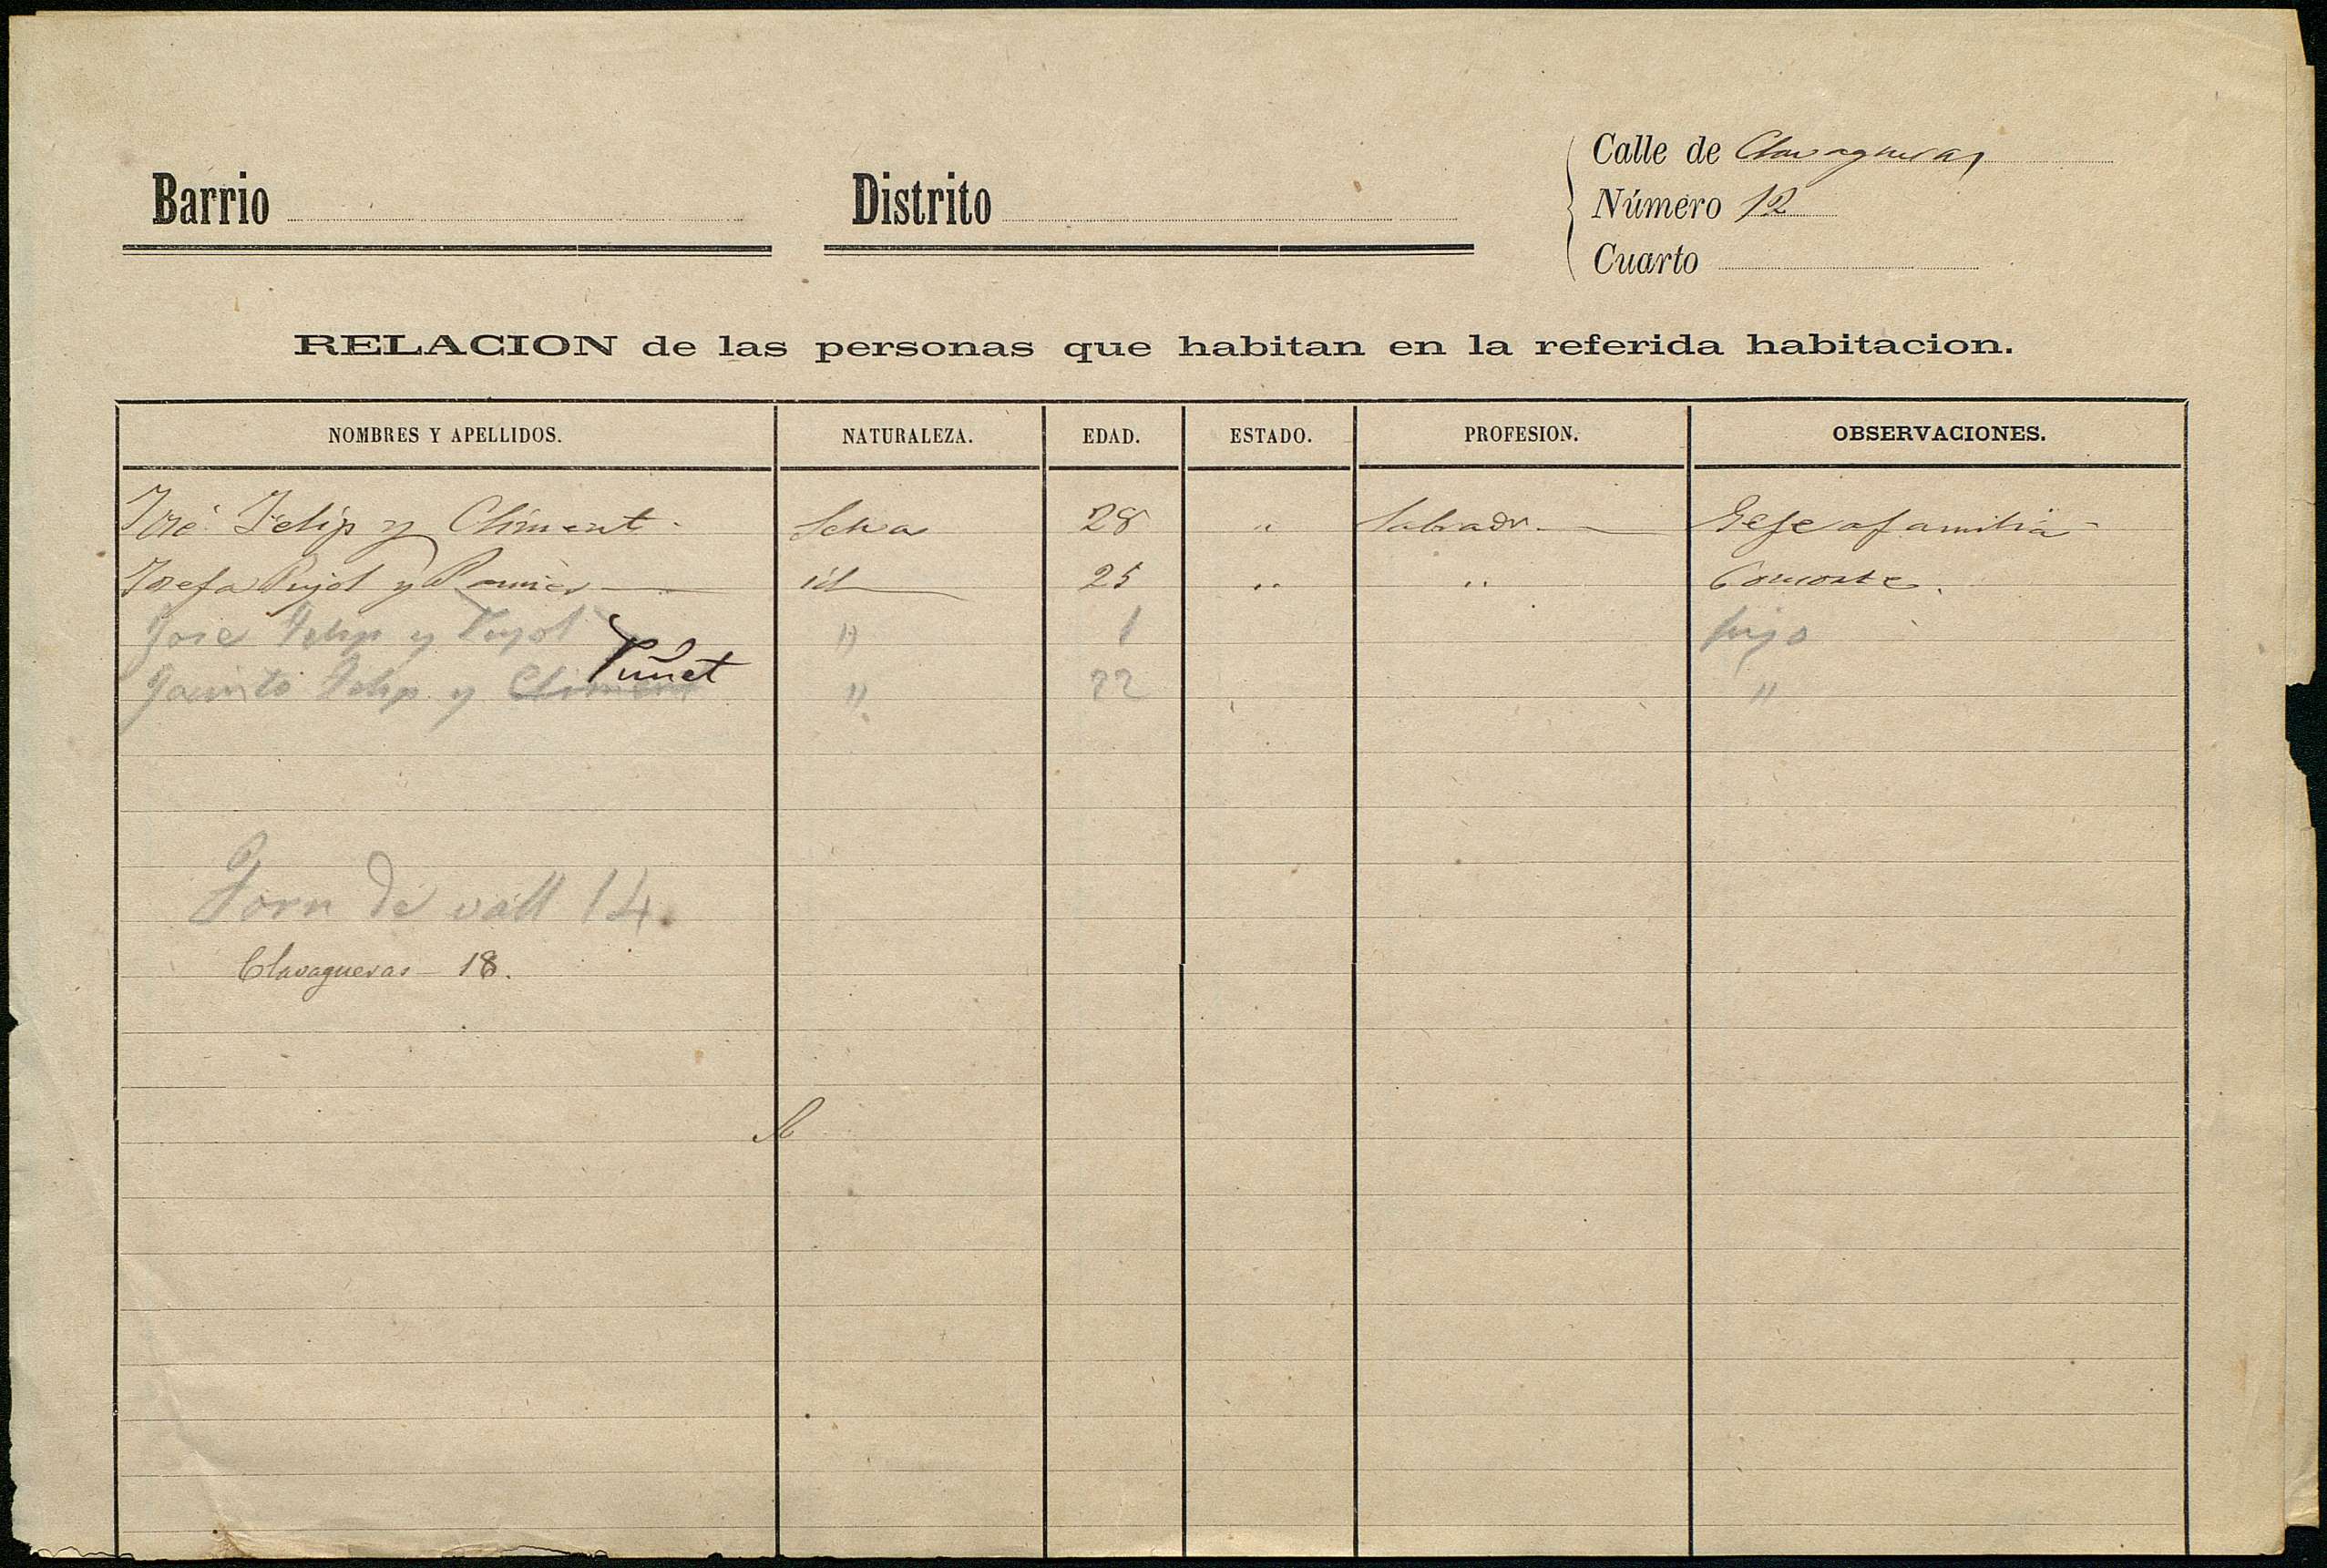 Barrio
Distrito
Calle de Clavagueras
Número 12
Cuarto
RELACION de las personas que habitan en la referida habitacion.
NOMBRES Y APELLIDOS. NATURALEZA. EDAD. ESTADO. PROFESION. OBSERVACIONES.
José Felip y Climent Selva 28 " Labrador Gefe a familia
Josefa Pujol y id 25 " " Consorte.
José Felip y Pujol " 1 hijo
Puñet
Jacinto Felip y Climent " 22 "
Forn de vall 14
Clavagueras 18.